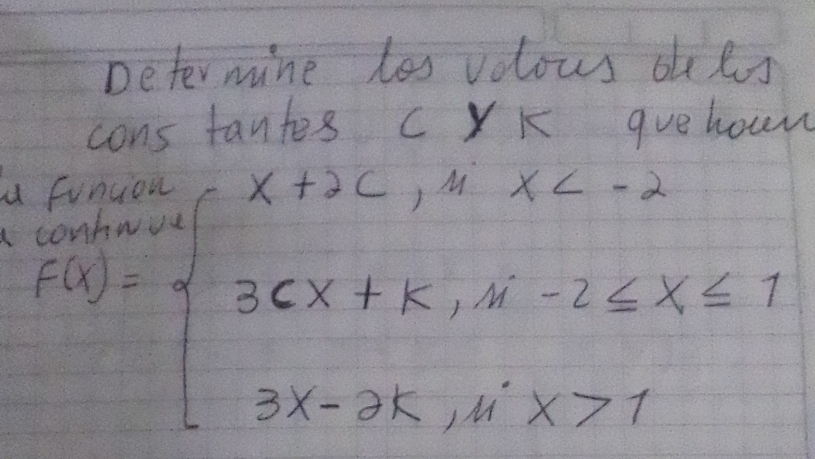 Determine los valores de las
constantes C y K que hacen
la función
a continua
x + 2c, si x < -2
F(x) =
3cx + k, si -2 ≤ x ≤ 1
3x - 2k, si x > 1